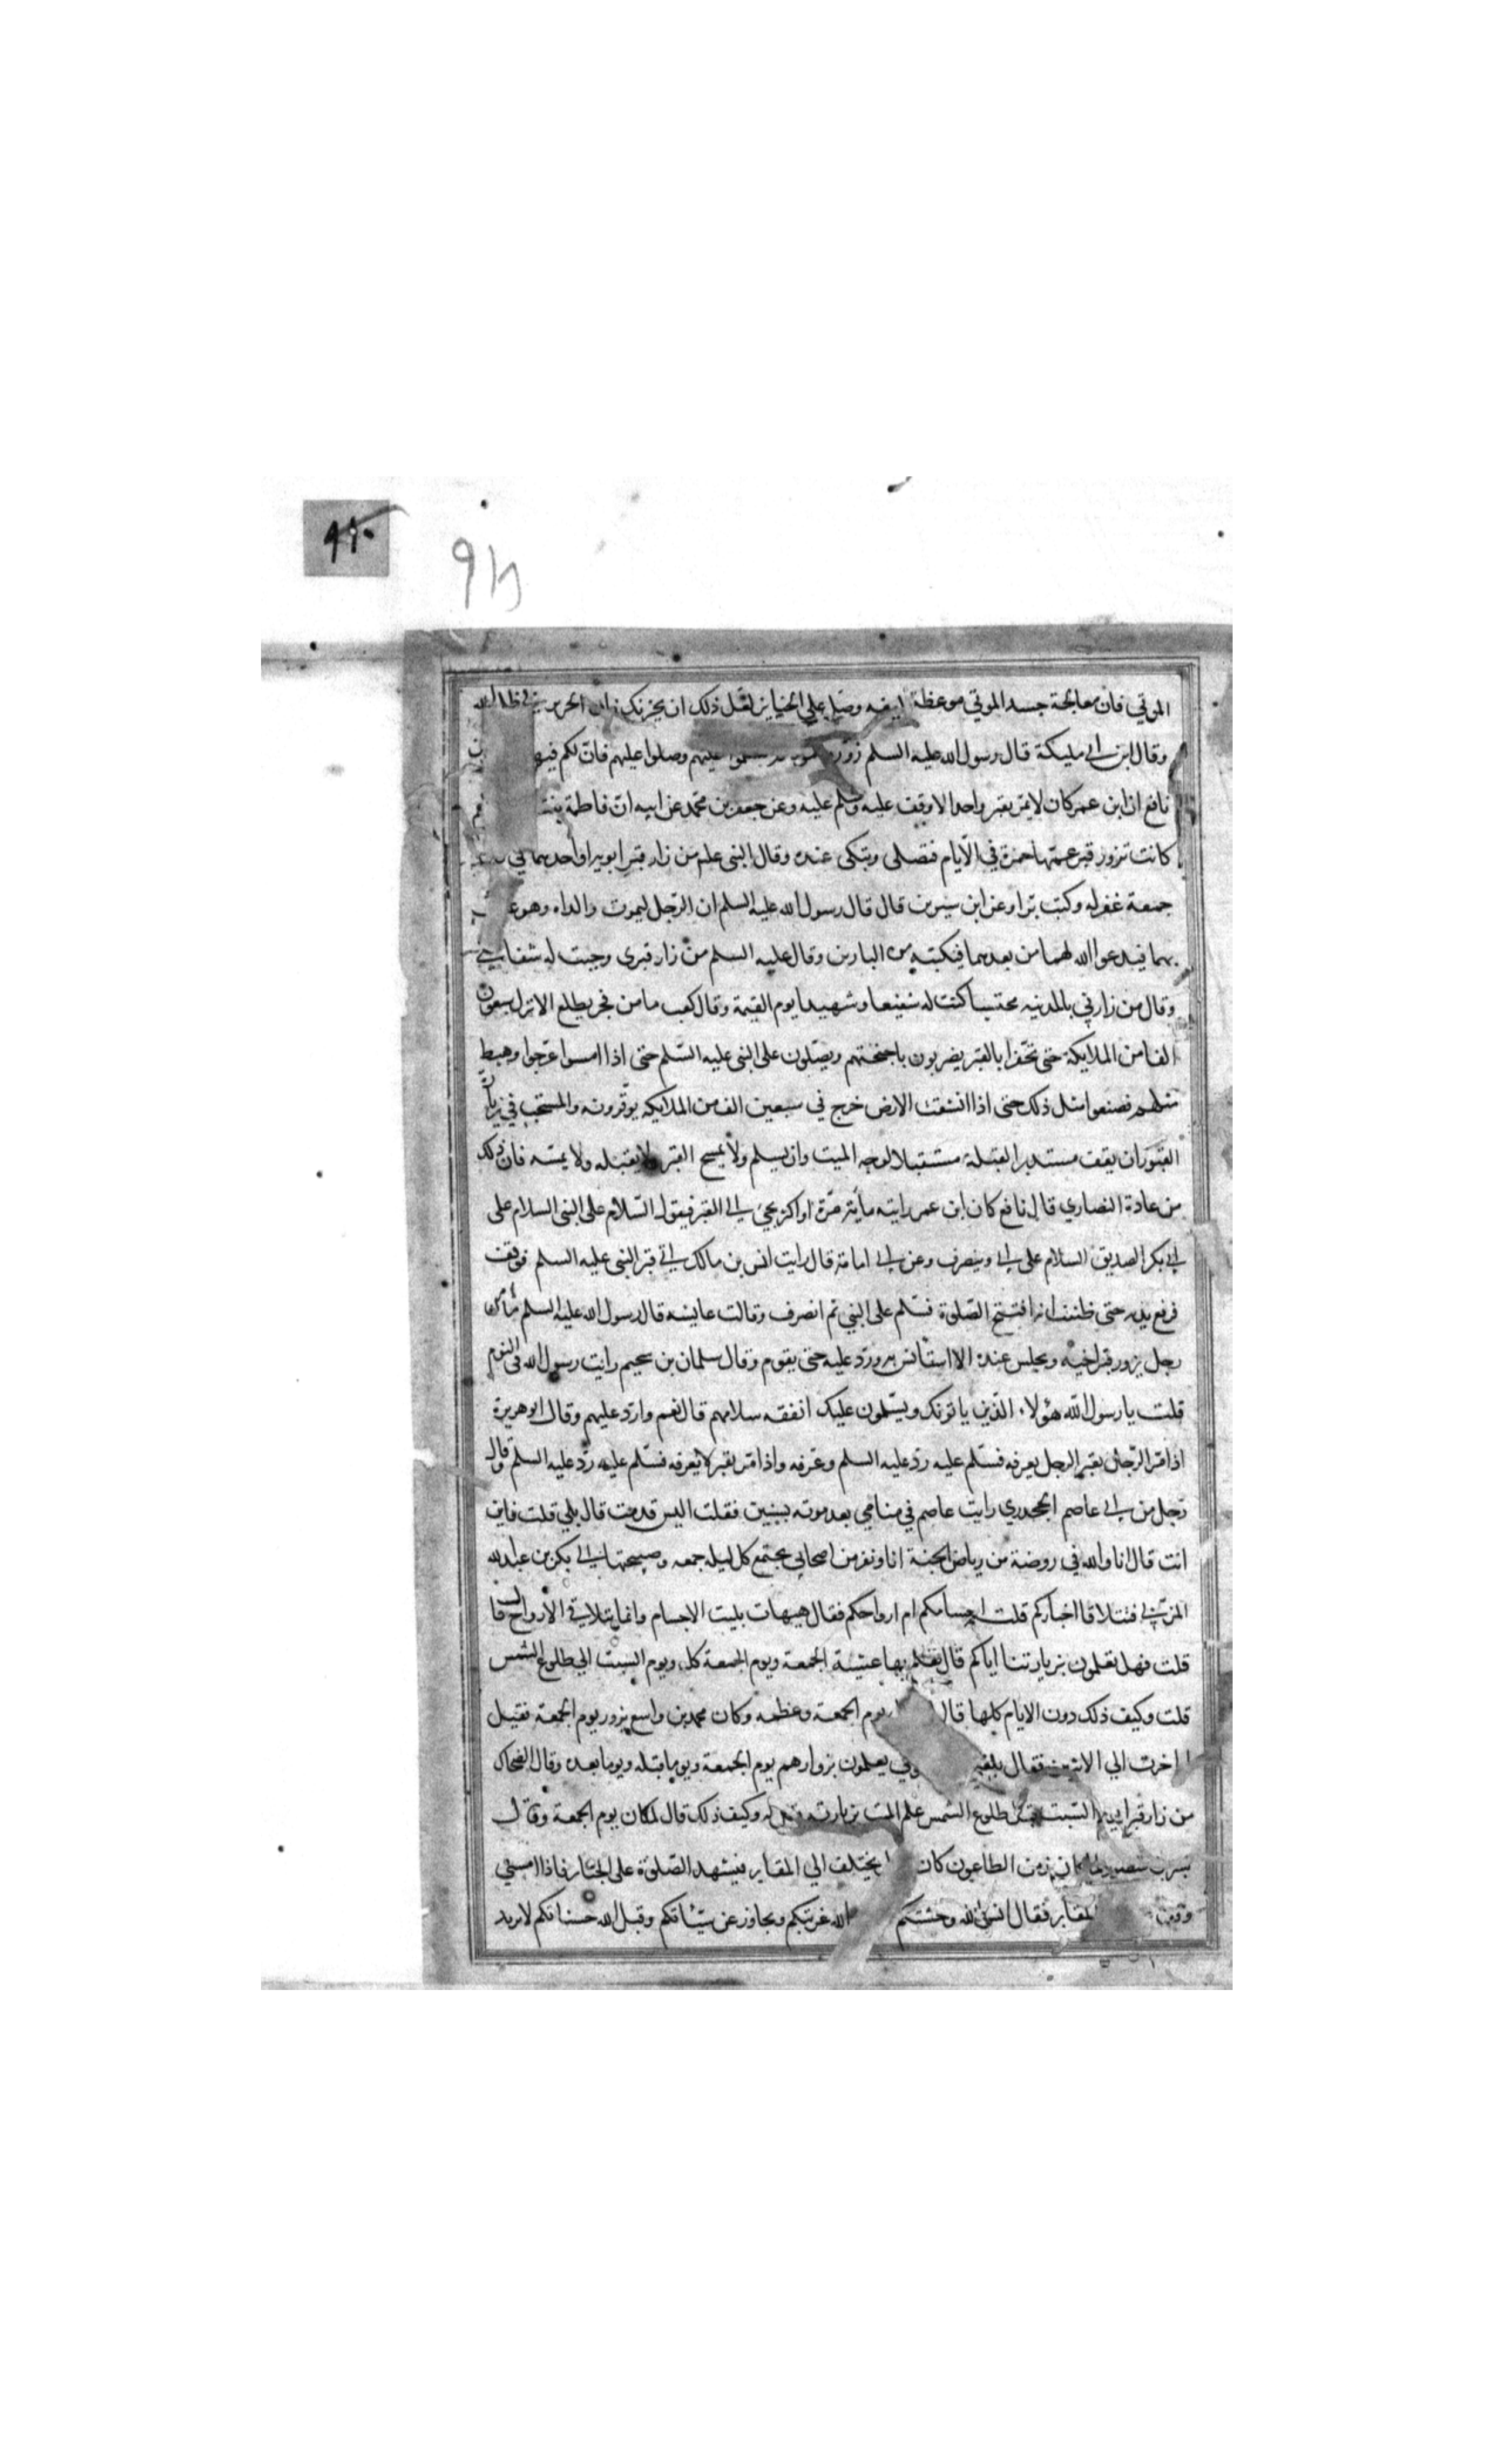 ٩١٠
الموتي فان معالجة جسد الموتي موعظة وصل علي الجنايز لعل ذلك ان يحزنك فان الحزين في ظل الله
وقال ابن ابي مليكة قال رسول الله عليه السلم زوروا عليهم وصلوا عليهم فان لكم فيهم
نافع ان ابن عمر كان لا يمر بقبر واحد الا وقف عليه وسلم عليه وعن جعفر بن محمد عن ابيه ان فاطمة بنت
كانت تزور قبر عمتها حمزة في الايام فتصلي وتبكي عنده وقال النبي علم من زار قبر ابويه او احدهما في
جمعة غفر له وكتب برا وعن ابن سيرين قال قال رسول الله عليه السلم ان الرجل ليموت والداه وهو عاق
بهما فيدعوا الله لهما من بعدهما فيكتبه من البارين وقال عليه السلم من زار قبري وجبت له شفاعتي
وقال من زارني بالمدينه محتسبا كنت له شفيعا وشهيدا يوم القيمة وقال كعب ما من فجر يطلع الا نزل سبعون
الفا من الملايكة حتى تحفوا بالقبر يضربون باجنحتهم ويصلون على النبي عليه السلم حتى اذا امسوا عرجوا وهبط
مثلهم فصنعوا مثل ذلك حتى اذا انشقت الارض خرج في سبعين الف من الملايكه يوقرونه والمستحب في زيارة
القبور ان يقف مستدبر القبلة مستقبلا لوجه الميت وان يسلم ولا يمسح القبر ولا يقبله ولا يمسه فان ذلك
من عادة النصاري قال نافع كان ابن عمر رايته مأية مرة او اكثر يجيء الي القبر فيقول السلام على النبي السلام على
ابي بكر الصديق السلام على ابي وينصرف وعن ابي امامة قال رايت انس بن مالك اتي قبر النبي عليه السلم فوقف
فرفع يديه حتى ظننت انه افتتح الصلوة فسلم على النبي ثم انصرف وقالت عايشه قال رسول الله عليه السلم ما من
رجل يزور قبر اخيه ويجلس عنده الا استانس به ورد عليه حتى يقوم وقال سلمان بن سحيم رايت رسول الله في النوم
قلت يا رسول الله هؤلاء الذين ياتونك ويسلمون عليك اتفقه سلامهم قال نعم وارد عليهم وقال ابو هريرة
اذا مر الرجل بقبر الرجل يعرفه فسلم عليه رد عليه السلم وعرفه واذا مر بقبر لا يعرفه فسلم عليه رد عليه السلم وقال
رجل من ابي عاصم الجحدري رايت عاصم في منامي بعد موته بسنين فقلت اليس قد مت قال بلي قلت فاين
انت قال انا والله في روضة من رياض الجنة انا ونفر من اصحابي نجتمع كل ليله جمعه وصبيحتها الي بكر بن عبدالله
المزني فنتلاقا اخباركم قلت اجسامكم ام ارواحكم فقال هيهات بليت الاجسام وانما يتلاقي الارواح قال
قلت فهل تعلمون بزيارتنا اياكم قال نعلم بها عشية الجمعة ويوم الجمعة كله ويوم السبت الي طلوع الشمس
قلت وكيف ذلك دون الايام كلها قال يوم الجمعة وعظمه وكان محمد بن واسع يزور يوم الجمعة فقيل
اخرت الي الاثنين فقال بلغني يعلمون بزوارهم يوم الجمعة ويوما قبله ويوما بعده وقال الضحاك
من زار قبرا يوم السبت قبل طلوع الشمس علم الميت بزيارته قيل له وكيف ذلك قال لمكان يوم الجمعة وقال
بشر بن منصور لما كان زمن الطاعون كان يختلف الي المقابر فيشهد الصلوة على الجنايز فاذا امسي
وقف المقابر فقال انس الله وحشتكم الله غربتكم وتجاوز عن سيئاتكم وقبل الله حسناتكم لا يزيد